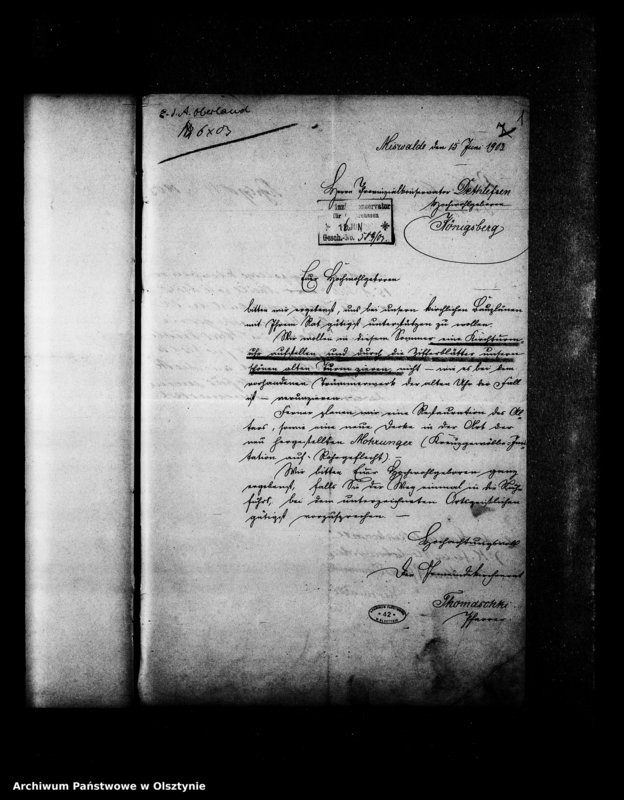 E. i. A. Oberland
6 x 03
1
Miswalde den 15 Juni 1903
Herrn Provinzialkonservator Dethlefsen
Hochwohlgeboren
Königsberg
Provinzialkonservator
für Ostpreussen
16 JUN
Gesch.-No.
Euer Hochwohlgeboren
bitten wir ergebenst, uns bei unsern kirchlichen Bauplänen
mit Ihrem Rat gütigst unterstützen zu wollen.
Wir wollen in diesem Sommer eine Kirchturm-
uhr aufstellen und durch die Zifferblätter unsern
schönen alten Turm zieren, nicht – wie es bei dem
vorhandenen Trümmerwerk der alten Uhr der Fall
ist – verunzieren.
Ferner planen wir eine Restauration des Al-
tars, sowie eine neue Decke in der Art der
neu hergestellten Mohrunger (Kreuzgewölbe Imi-
tation auf Rohrgeflecht) –
Wir bitten Euer Hochwohlgeboren ganz
ergebenst, falls Sie der Weg einmal in die Nähe
führt, bei dem unterzeichneten Ortsgeistlichen
gütigst vorzusprechen. –
Hochachtungsvoll
Der Gemeindekirchenrat
Thomaschki
Pfarrer
42
Archiwum Państwowe w Olsztynie